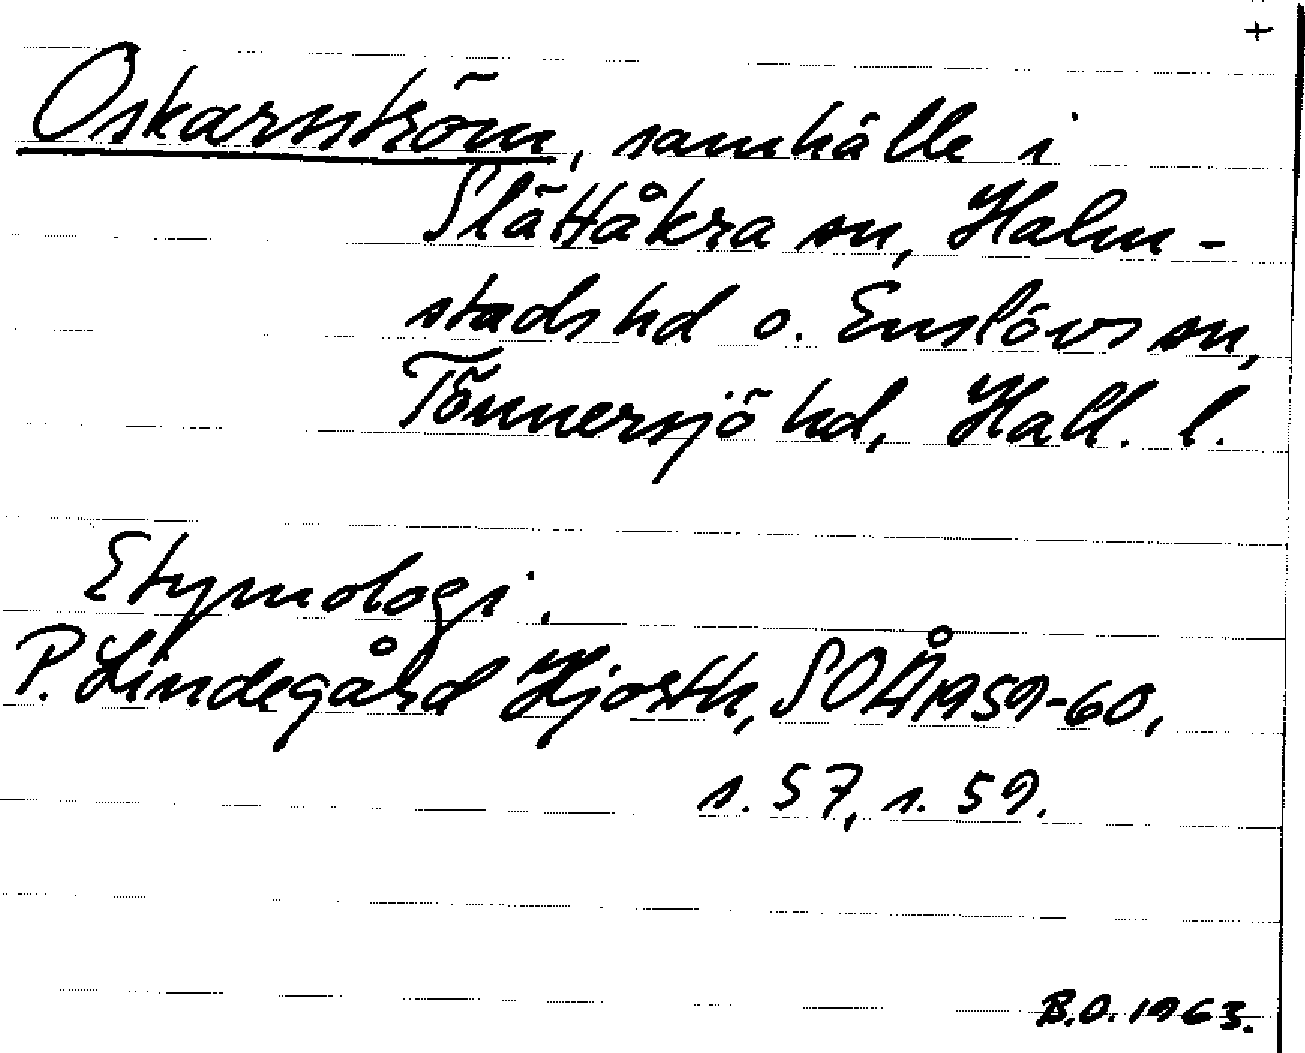 +
Oskarsström, samhälle i
Slättåkra sn, Halm-
stads hd o. Enslövs sn,
Tönnersjö hd, Hall. l.
Etymologi.
P. Lindegård Hjorth, SOÅ 1959-60,
s. 57, s. 59.
B.O. 1963.